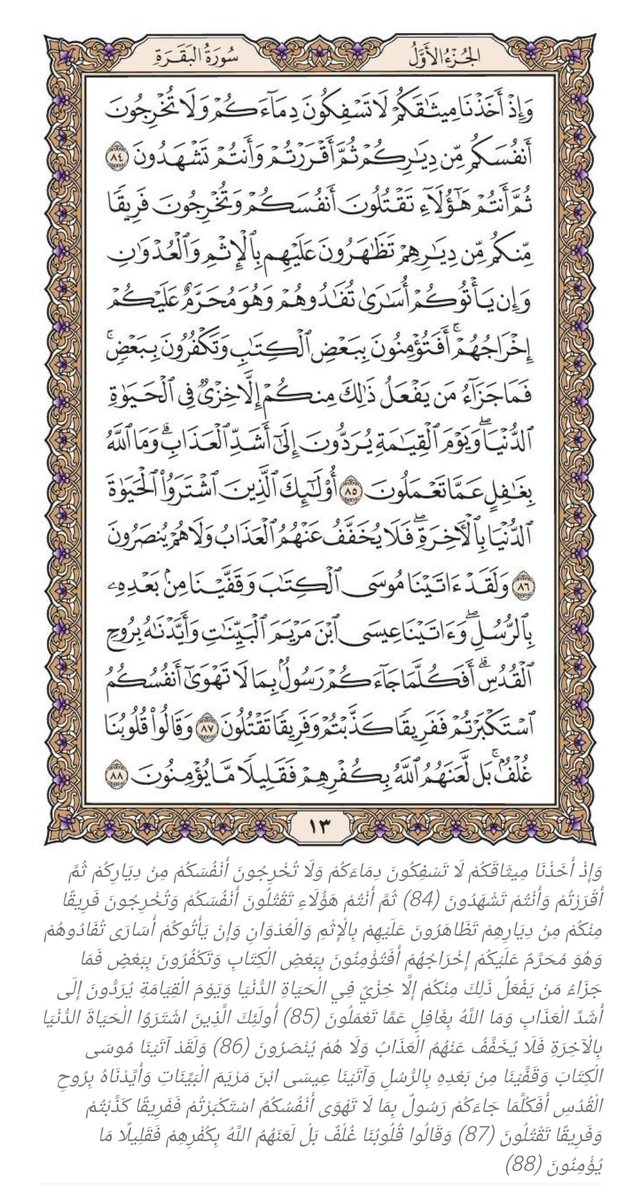 الجُزْءُ الأَوَّلُ
سُورَةُ البَقَرَةِ
وَإِذْ أَخَذْنَا مِيثَٰقَكُمْ لَا تَسْفِكُونَ دِمَآءَكُمْ وَلَا تُخْرِجُونَ
أَنفُسَكُم مِّن دِيَٰرِكُمْ ثُمَّ أَقْرَرْتُمْ وَأَنتُمْ تَشْهَدُونَ ٨٤
ثُمَّ أَنتُمْ هَٰٓؤُلَآءِ تَقْتُلُونَ أَنفُسَكُمْ وَتُخْرِجُونَ فَرِيقًا
مِّنكُم مِّن دِيَٰرِهِمْ تَظَٰهَرُونَ عَلَيْهِم بِٱلْإِثْمِ وَٱلْعُدْوَٰنِ
وَإِن يَأْتُوكُمْ أُسَٰرَىٰ تُفَٰدُوهُمْ وَهُوَ مُحَرَّمٌ عَلَيْكُمْ
إِخْرَاجُهُمْ ۚ أَفَتُؤْمِنُونَ بِبَعْضِ ٱلْكِتَٰبِ وَتَكْفُرُونَ بِبَعْضٍ ۚ
فَمَا جَزَآءُ مَن يَفْعَلُ ذَٰلِكَ مِنكُمْ إِلَّا خِزْىٌ فِى ٱلْحَيَوٰةِ
ٱلدُّنْيَا ۖ وَيَوْمَ ٱلْقِيَٰمَةِ يُرَدُّونَ إِلَىٰٓ أَشَدِّ ٱلْعَذَابِ ۗ وَمَا ٱللَّهُ
بِغَٰفِلٍ عَمَّا تَعْمَلُونَ ٨٥ أُو۟لَٰٓئِكَ ٱلَّذِينَ ٱشْتَرَوُا۟ ٱلْحَيَوٰةَ
ٱلدُّنْيَا بِٱلْءَاخِرَةِ ۖ فَلَا يُخَفَّفُ عَنْهُمُ ٱلْعَذَابُ وَلَا هُمْ يُنصَرُونَ
٨٦ وَلَقَدْ ءَاتَيْنَا مُوسَى ٱلْكِتَٰبَ وَقَفَّيْنَا مِنۢ بَعْدِهِۦ
بِٱلرُّسُلِ ۖ وَءَاتَيْنَا عِيسَى ٱبْنَ مَرْيَمَ ٱلْبَيِّنَٰتِ وَأَيَّدْنَٰهُ بِرُوحِ
ٱلْقُدُسِ ۗ أَفَكُلَّمَا جَآءَكُمْ رَسُولٌۢ بِمَا لَا تَهْوَىٰٓ أَنفُسُكُمُ
ٱسْتَكْبَرْتُمْ فَفَرِيقًا كَذَّبْتُمْ وَفَرِيقًا تَقْتُلُونَ ٨٧ وَقَالُوا۟ قُلُوبُنَا
غُلْفٌۢ ۚ بَل لَّعَنَهُمُ ٱللَّهُ بِكُفْرِهِمْ فَقَلِيلًا مَّا يُؤْمِنُونَ ٨٨
١٣
وَإِذْ أَخَذْنَا مِيثَاقَكُمْ لَا تَسْفِكُونَ دِمَاءَكُمْ وَلَا تُخْرِجُونَ أَنْفُسَكُمْ مِنْ دِيَارِكُمْ ثُمَّ
أَقْرَرْتُمْ وَأَنْتُمْ تَشْهَدُونَ (84) ثُمَّ أَنْتُمْ هَؤُلَاءِ تَقْتُلُونَ أَنْفُسَكُمْ وَتُخْرِجُونَ فَرِيقًا
مِنْكُمْ مِنْ دِيَارِهِمْ تَظَاهَرُونَ عَلَيْهِمْ بِالْإِثْمِ وَالْعُدْوَانِ وَإِنْ يَأْتُوكُمْ أُسَارَى تُفَادُوهُمْ
وَهُوَ مُحَرَّمٌ عَلَيْكُمْ إِخْرَاجُهُمْ أَفَتُؤْمِنُونَ بِبَعْضِ الْكِتَابِ وَتَكْفُرُونَ بِبَعْضٍ فَمَا
جَزَاءُ مَنْ يَفْعَلُ ذَلِكَ مِنْكُمْ إِلَّا خِزْيٌ فِي الْحَيَاةِ الدُّنْيَا وَيَوْمَ الْقِيَامَةِ يُرَدُّونَ إِلَى
أَشَدِّ الْعَذَابِ وَمَا اللَّهُ بِغَافِلٍ عَمَّا تَعْمَلُونَ (85) أُولَئِكَ الَّذِينَ اشْتَرَوُا الْحَيَاةَ الدُّنْيَا
بِالْآخِرَةِ فَلَا يُخَفَّفُ عَنْهُمُ الْعَذَابُ وَلَا هُمْ يُنْصَرُونَ (86) وَلَقَدْ آتَيْنَا مُوسَى
الْكِتَابَ وَقَفَّيْنَا مِنْ بَعْدِهِ بِالرُّسُلِ وَآتَيْنَا عِيسَى ابْنَ مَرْيَمَ الْبَيِّنَاتِ وَأَيَّدْنَاهُ بِرُوحِ
الْقُدُسِ أَفَكُلَّمَا جَاءَكُمْ رَسُولٌ بِمَا لَا تَهْوَى أَنْفُسُكُمُ اسْتَكْبَرْتُمْ فَفَرِيقًا كَذَّبْتُمْ
وَفَرِيقًا تَقْتُلُونَ (87) وَقَالُوا قُلُوبُنَا غُلْفٌ بَلْ لَعَنَهُمُ اللَّهُ بِكُفْرِهِمْ فَقَلِيلًا مَا
يُؤْمِنُونَ (88)